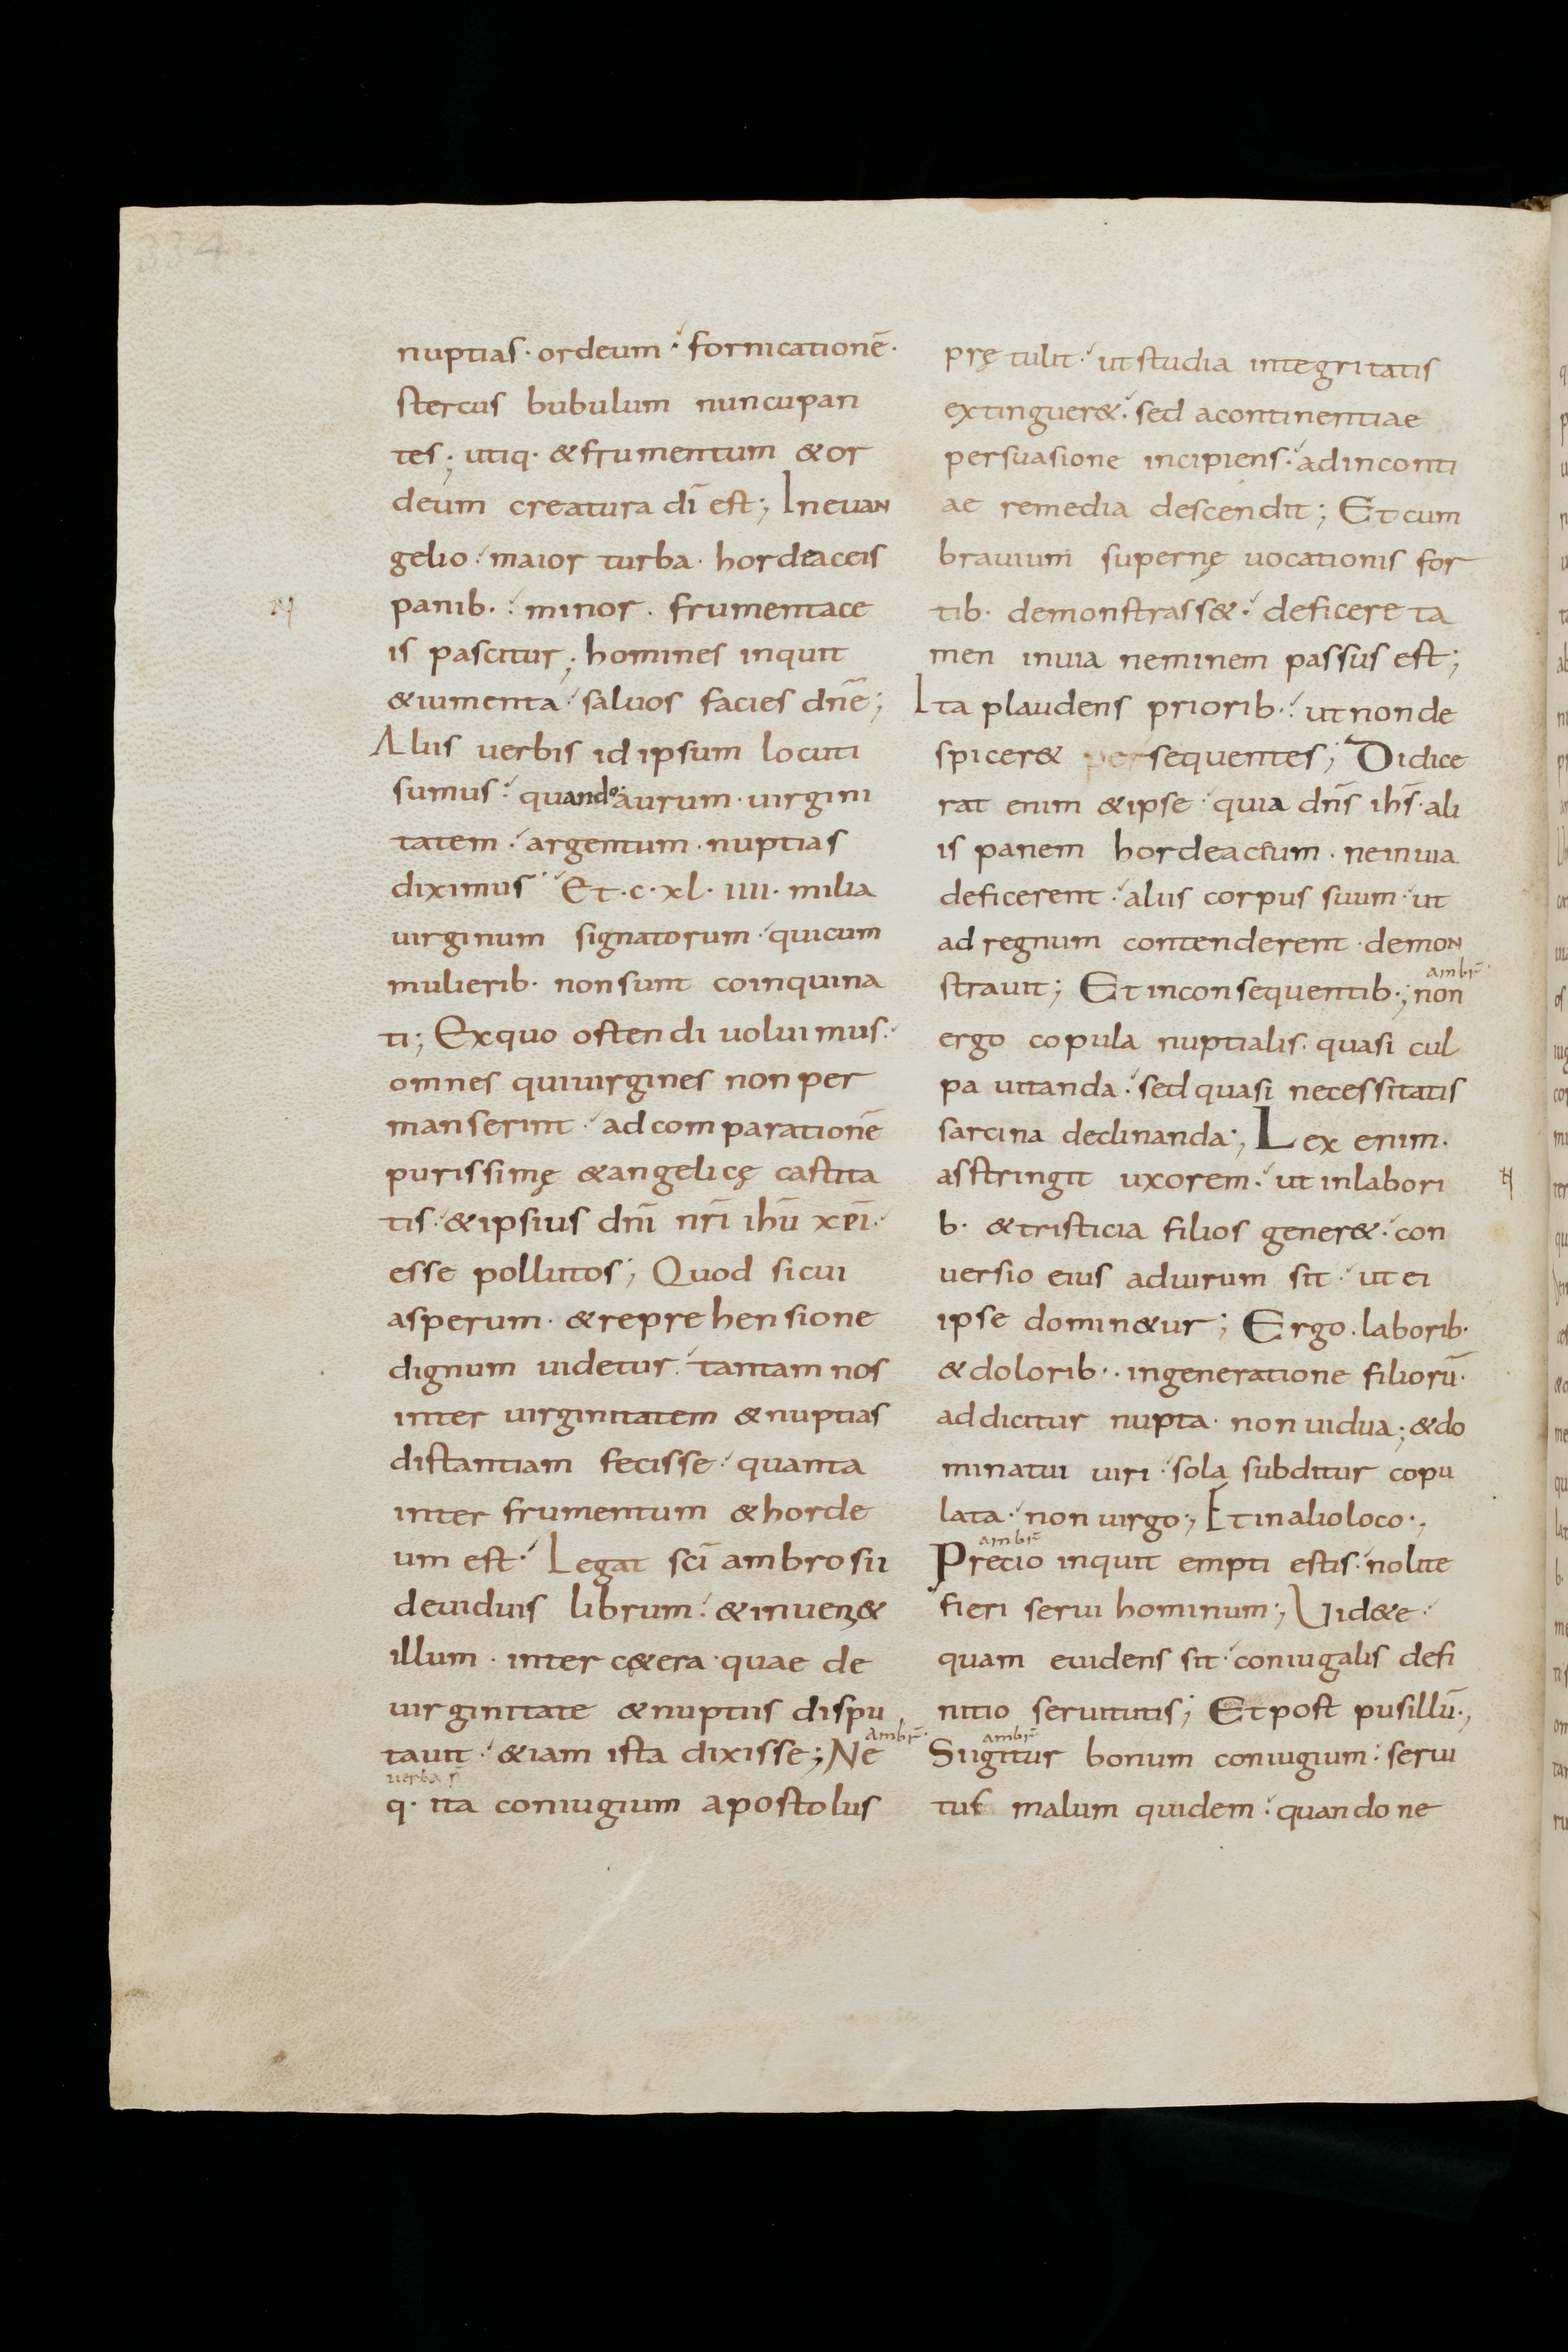 334
nuptias· ordeum· fornicationē·
stercus bubulum nuncupan
tes; utiq· & frumentum & or
deum creatura dī est; In euan
gelio· maior turba· hordeaceis
panib·· minor· frumentace
is pascitur; homines inquit
& iumenta· saluos facies dnē;
Aliis uerbis id ipsum locuti
sumus· quando· aurum· uirgini
tatem· argentum· nuptias
diximus· Et·c·xl·iiii· milia
uirginum signatorum· qui cum
mulierib· non sunt coinquina
ti; Ex quo ostendi uoluimus·
omnes qui uirgines non per
manserint· ad comparationē
purissimę & angelicę castita
tis· & ipsius dnī nrī ihū xpī·
esse pollutos; Quod si cui
asperum· & reprehensione
dignum uidetur· tantam nos
inter uirginitatem & nuptias
distantiam fecisse· quanta
inter frumentum & horde
um est· Legat scī ambrosii
de uiduis librum· & inueni&
illum· inter c&era· quae de
uirginitate & nuptiis dispu
ambr̄·
tauit· &iam ista dixisse; Ne
uerba r̄
q· ita coniugium apostolus
prętulit· ut studia integritatis
extinguer&· sed a continentiae
persuasione incipiens· ad inconti
ae remedia descendit; Et cum
brauium supernę uocationis for
tib· demonstrass&· deficere ta
men in uia neminem passus est;
Ita plaudens priorib·· ut non de
spicer& persequentes; Didice
rat enim & ipse· quia dnīs ihs̄· ali
is panem hordeacium· ne in uia
deficerent· aliis corpus suum· ut
ad regnum contenderent· demon
ambr̄·
strauit; Et in consequentib·; non
ergo copula nuptialis· quasi cul
pa uitanda· sed quasi necessitatis
sarcina declinanda·; Lex enim·
asstringit uxorem· ut in labori
b· & tristicia filios gener&· con
uersio eius ad uirum sit· ut ei
ipse domin&ur; Ergo· laborib·
& dolorib·· in generatione filiorū·
addicitur nupta· non uidua; & do
minatui uiri· sola subditur copu
lata· non uirgo·; Et in alio loco·;
ambr̄
Precio inquit empti estis· nolite
fieri serui hominum·; Uid&e·
quam euidens sit· coniugalis defi
nitio seruitutis; Et post pusillū·;
ambr̄
Siigitur bonum coniugium· serui
tus malum quidem· quando ne